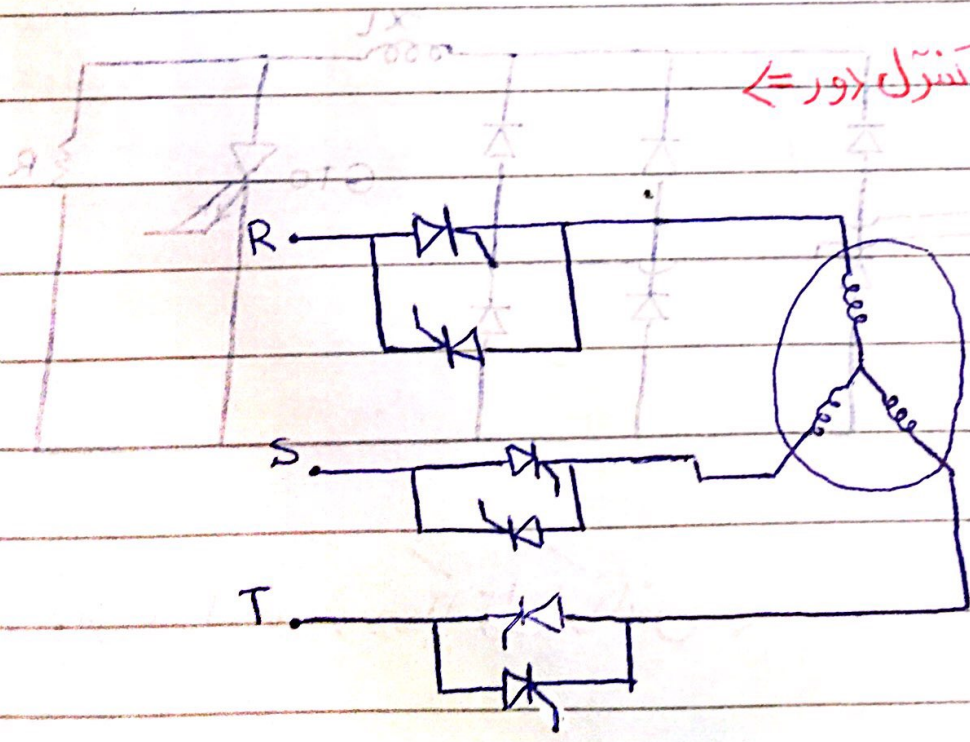 کنترل دور =>
R
S
T